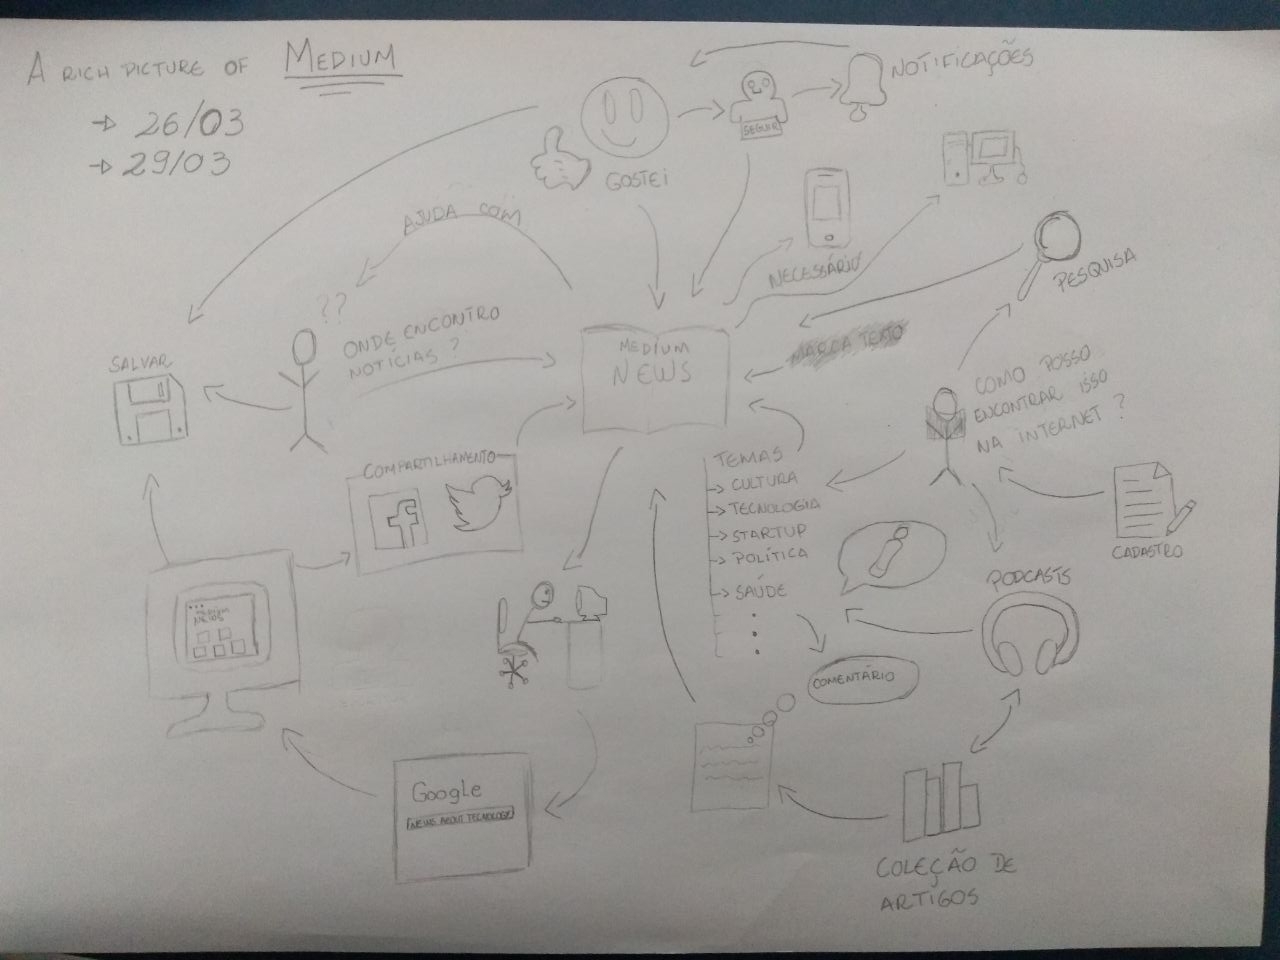 A RICH PICTURE OF MEDIUM
→ 26/03
→ 29/03
NOTIFICAÇÕES
SEGUIR
GOSTEI
AJUDA COM
NECESSÁRIO
PESQUISA
??
ONDE ENCONTRO
NOTÍCIAS?
MEDIUM
NEWS
MARCA TEXTO
SALVAR
COMO POSSO
ENCONTRAR ISSO
NA INTERNET?
COMPARTILHAMENTO
f
TEMAS
→ CULTURA
→ TECNOLOGIA
→ STARTUP
→ POLÍTICA
→ SAÚDE
i
CADASTRO
PODCASTS
MEDIUM
NEWS
COMENTÁRIO
Google
NEWS ABOUT TECNOLOGY
COLEÇÃO DE
ARTIGOS